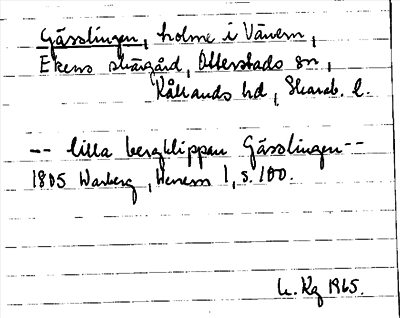 Gässlingen, holme i Vänern,
Ekens skärgård, Otterstads sn,
Kållands hd, Skarab. l.
-- lilla bergklippan Gässlingen--
1805 Warberg, Venern 1, s. 100.
L. Kg 1965.